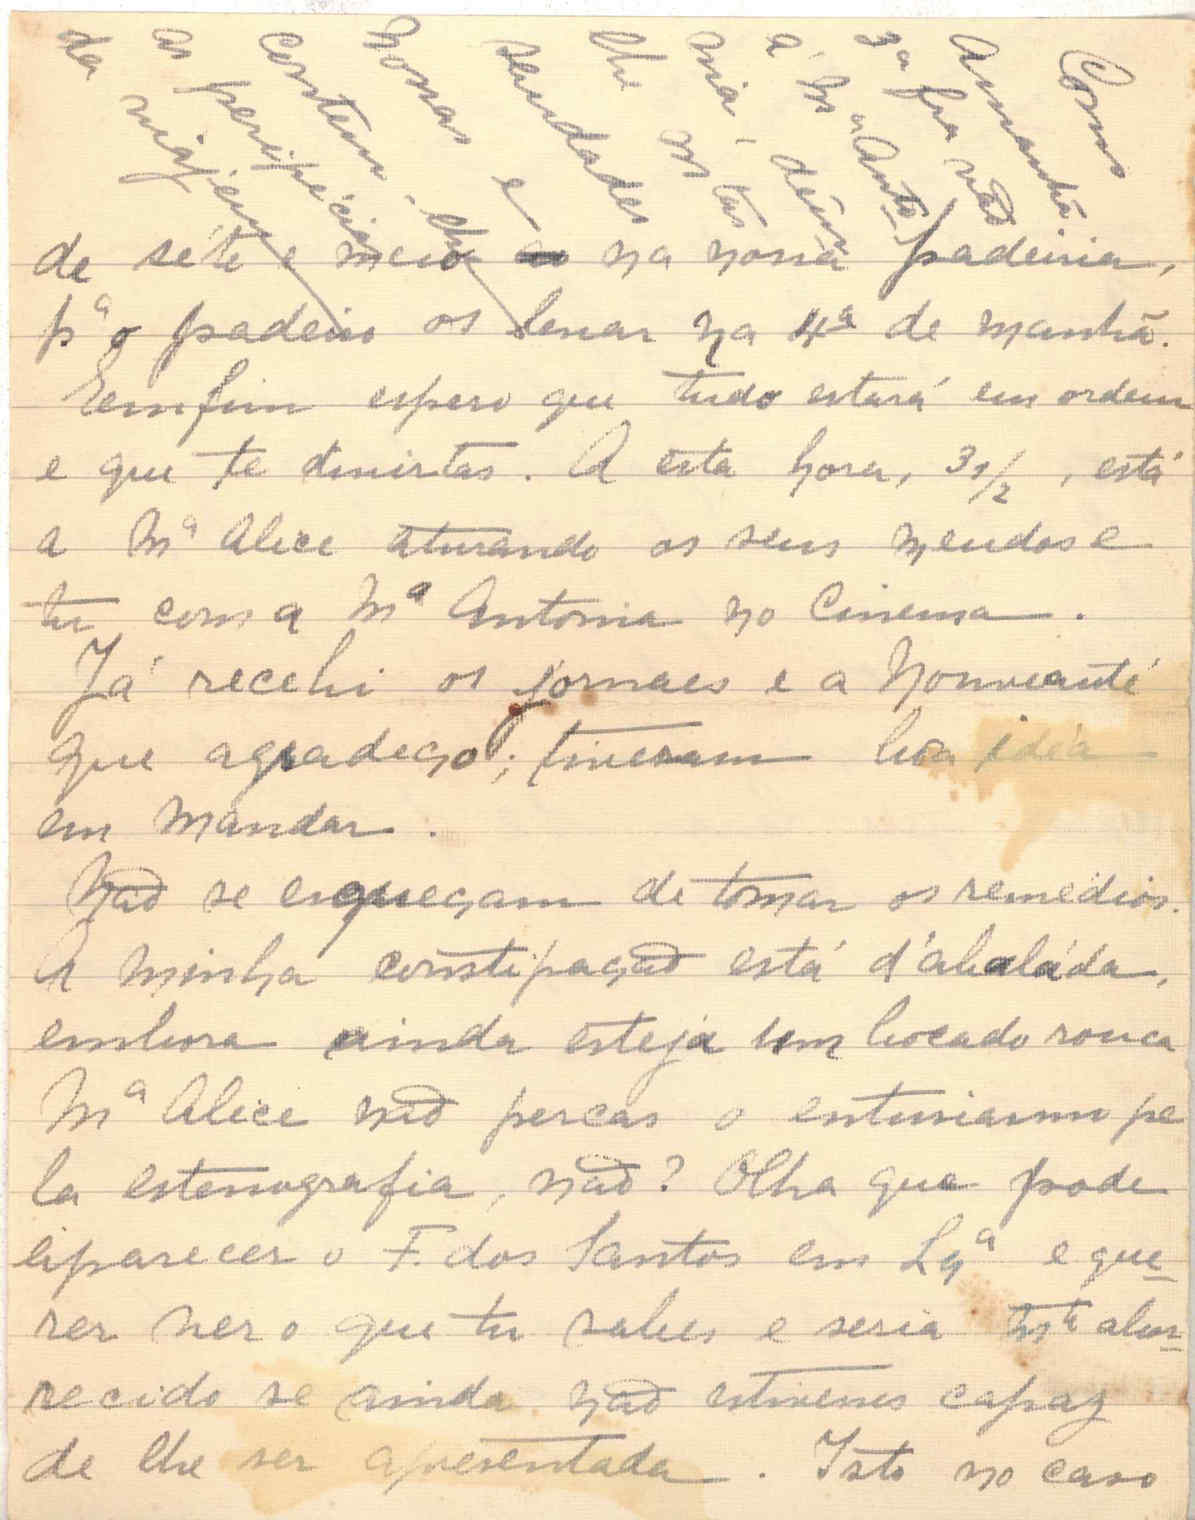 Como
Amanhã
3ª fra não
á Mª Anto-
nia, dêm
lhe as tas
saudades
nossas e
contem-lhe
as peripécias
da viagem
de sete e meia na nossa padeiria,
pª o padeiro os levar na 4ª de manhã.
Eemfim espero que tudo estará em ordem
e que te divirtas. A esta hora, 3 1/2, está
a Mª Alice aturando os seus meudos e
tu com a Mª Antonia no Cinema.
Já recebi os jornaes e a Nouveauté
que agradeço; tiveram boa idéa
em mandar.
Não se esqueçam de tomar os remedios.
A minha constipação está d'abaláda,
embora ainda esteja um bocado rouca
Mª Alice não percas o entusiasmo pe
la estenografia, não? Olha que pode
aparecer o F. dos Santos em Lxª e que-
rer ver o que tu sabes e seria mtº abor-
recido se ainda não estivesses capaz
de lhe ser apresentada. Isto no caso